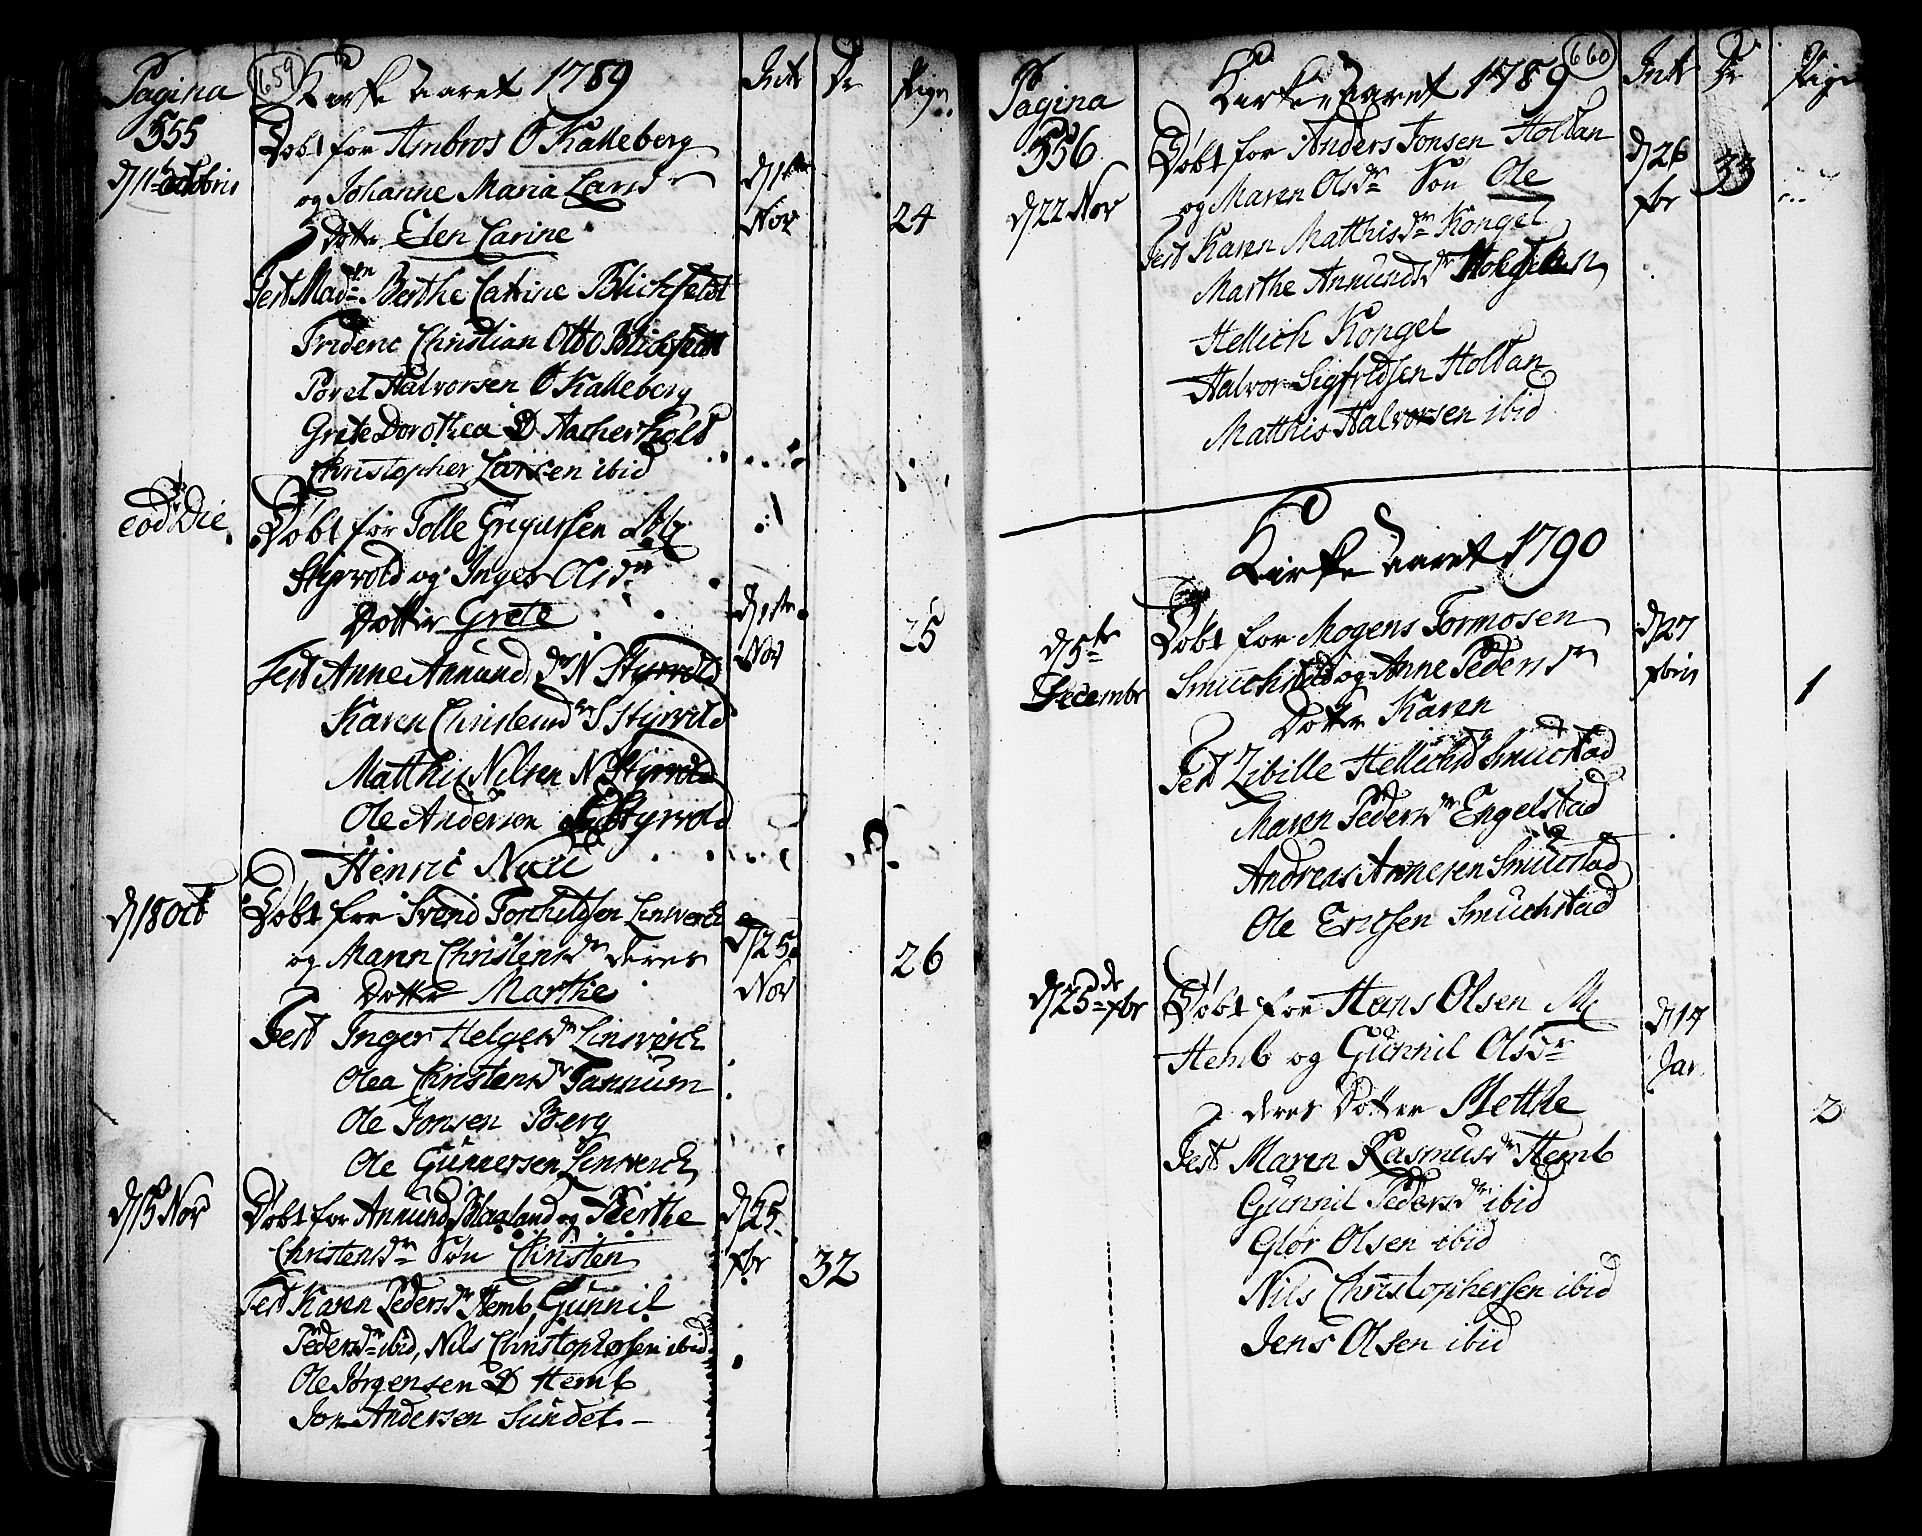 Pagina
555
659
Kirke Aaret 1789
Intr
Dr
Pige
d 11te Octobris
Døbt for Ambros Ø Kalleberg
og Johanne Maria Larsdr
Dotter Elen Carine
d 1te
Nov
24
Test Madme Berthe Catrine Blichfeldt
Frideric Christian Otto Blichfeldt
Povel Halvorsen Ø Kalleberg
Grete Dorothea D Aacherholt
Christopher Larsen ibid
eod Die
Døbt for Tolle Gregersen
Styrvold og Inger Olsdr
Dotter Grete
d 1te
Nov
25
Test Anne Anundsdr N Styrvold
Karen Christensdr S Styrvold
Matthis Nilsen N Styrvold
Ole Andersen Styrvold
Henric
d 18 Oct
Døbt for Svend Torchildsen Linverch
og Maren Christensdr deres
Dotter Marthe
d 25
Nov
26
Test Inger Helgesdr Linverch
Olea Christensdr Tannum
Ole Jonsen Berg
Ole Gunnersen Linverch
d 15 Nov
Døbt for Anund Blagland og Berthe
Christensdr Søn Christen
d 25
xbr
32
Test Karen Pedersdr Hemb, Gunnil
Pedersdr ibid, Nils Christophersen ibid
Ole Jørgensen D Hemb
Jon Andersen Sundet
Pagina
556
Kirke Aaret 1789
660
Intr
Dr
Pige
d 22 Nov
Døbt for Anders Jonsen Holtan
og Maren Olsdr Søn Ole
d 26
xbr
33
Test Karen Matthisdr Kongel
Marthe Anundsdr
Hellich Kongel
Halvor Sigfridsen Holtan
Matthis Halvorsen ibid
Kirke Aaret 1790
d 5te
Decembr
Døbt for Mogens Tormosen
Smuchstad og Anne Pedersdr
Dotter Karen
d 27
xbris
1
Test Zibille Hellichsdr Smucstad
Maren Pedersdr Engelstad
Andreas Arnesen Smucstad
Ole Ericsen Smuchstad
d 25de xbr
Døbt for Hans Olsen M
Hemb og Gunnil Olsdr
deres Dotter Methe
d 17
Jan
2
Test Maren Rasmusdr Hemb
Gunnil Pedersdr ibid
Glør Olsen ibid
Nils Christophersen ibid
Jens Olsen ibid